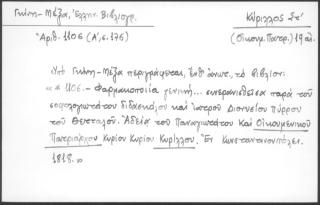 Γκίνη - Μέξα, Ἑλλην. Βιβλιογρ.
Κύριλλος Στ'
Ἀριθ. 1106 (Α', σ. 176)
(Οἰκουμ. Πατρ.) 19 αἰ.
Ὑπό Γκίνη-Μέξα περιγράφεται, ἔνθ' ἀνωτ., τό βιβλίον:
« 1106. - Φαρμακοποιΐα γενική... συνερανισθεῖσα παρά τοῦ
σοφολογιωτάτου διδασκάλου καί ἰατροῦ Διονυσίου Πύρρου
τοῦ Θετταλοῦ. Ἀδείᾳ τοῦ Παναγιωτάτου καί Οἰκουμενικοῦ
Πατριάρχου Κυρίου Κυρίου Κυρίλλου. Ἐν Κωνσταντινουπόλει.
1818. »